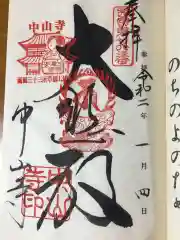 奉拝
令和二年一月四日
大悲殿
中山寺
中山寺
西国三十三所第二十四番
中山寺印
のちのよのため